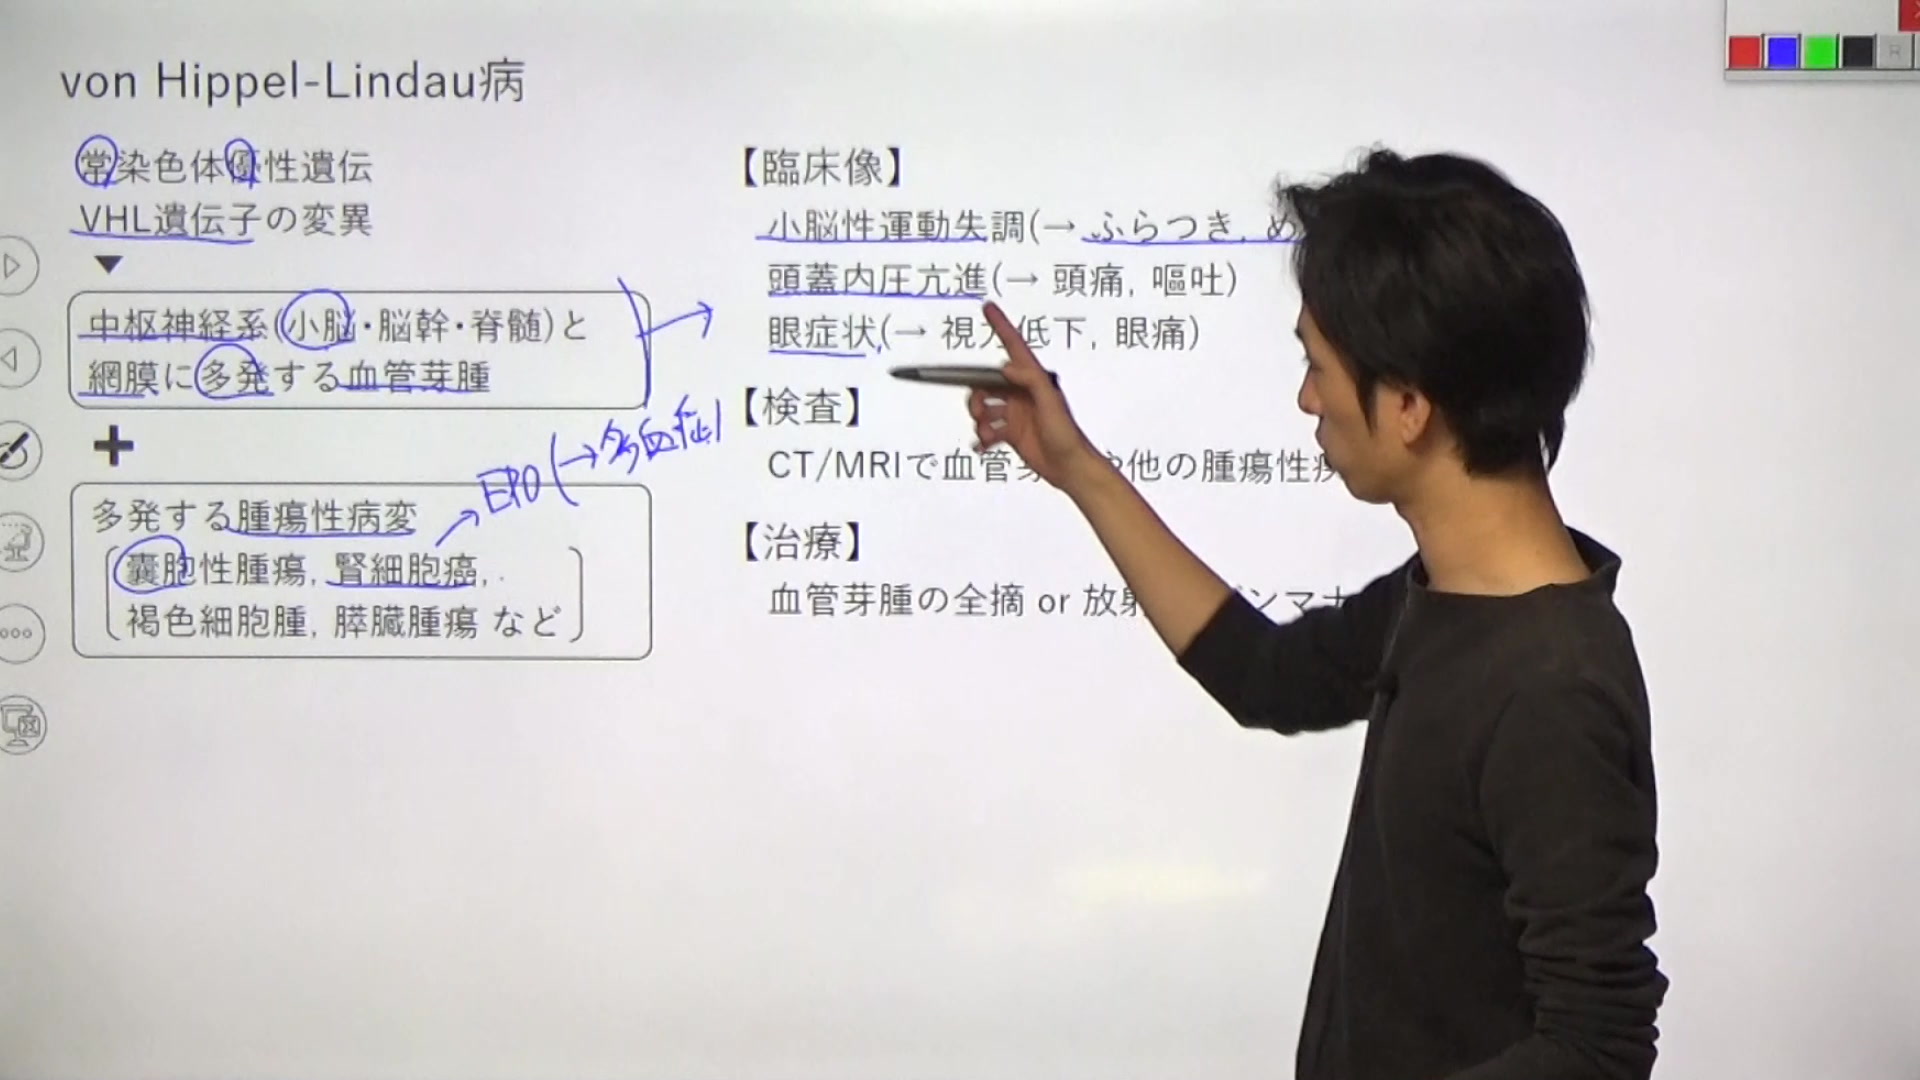 von Hippel-Lindau病
常染色体優性遺伝
VHL遺伝子の変異
▼
中枢神経系(小脳・脳幹・脊髄)と
網膜に多発する血管芽腫
+
EPO(→多血症)
多発する腫瘍性病変
嚢胞性腫瘍, 腎細胞癌,
褐色細胞腫, 膵臓腫瘍 など
【臨床像】
小脳性運動失調(→ ふらつき, め
頭蓋内圧亢進(→ 頭痛, 嘔吐)
眼症状(→ 視力低下, 眼痛)
【検査】
CT/MRIで血管芽 や他の腫瘍性病
【治療】
血管芽腫の全摘 or 放射 ンマナ
R